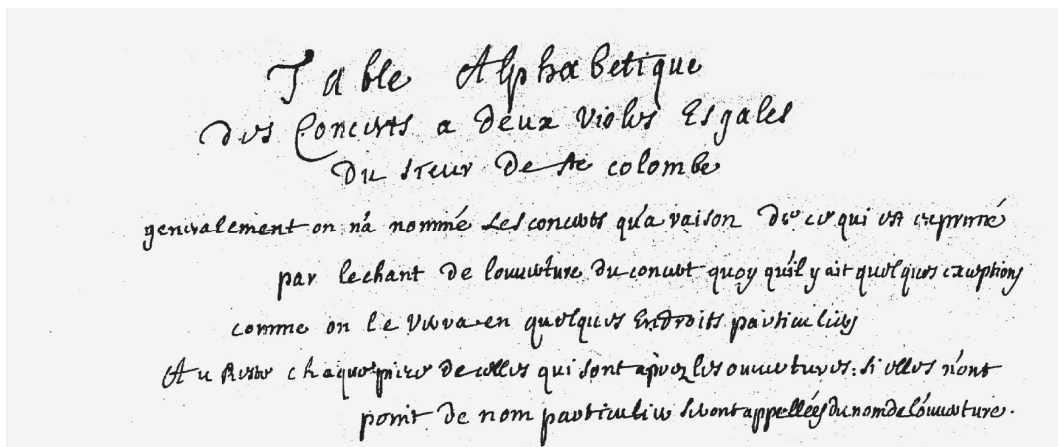 Table Alphabetique
des Concerts a deux Violes Esgales
du sieur de Ste colombe
generalement on n'a nommé les concerts qu'a raison de ce qui est exprimé
par le chant de l'ouuerture du concert quoy qu'il y ait quelques exceptions
comme on le verra en quelques Endroits particuliers
Au Reste chaque piece de celles qui sont aprez les ouuertures: si elles n'ont
point de nom particulier seront appellées du nom de l'ouuerture.